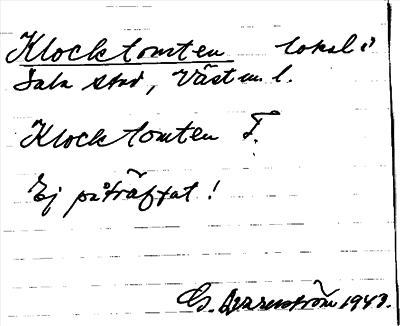 Klocktomten lokal?
Sala stad, Västm. l.
Klocktomten F.
Ej påträffat!
G. 1943.